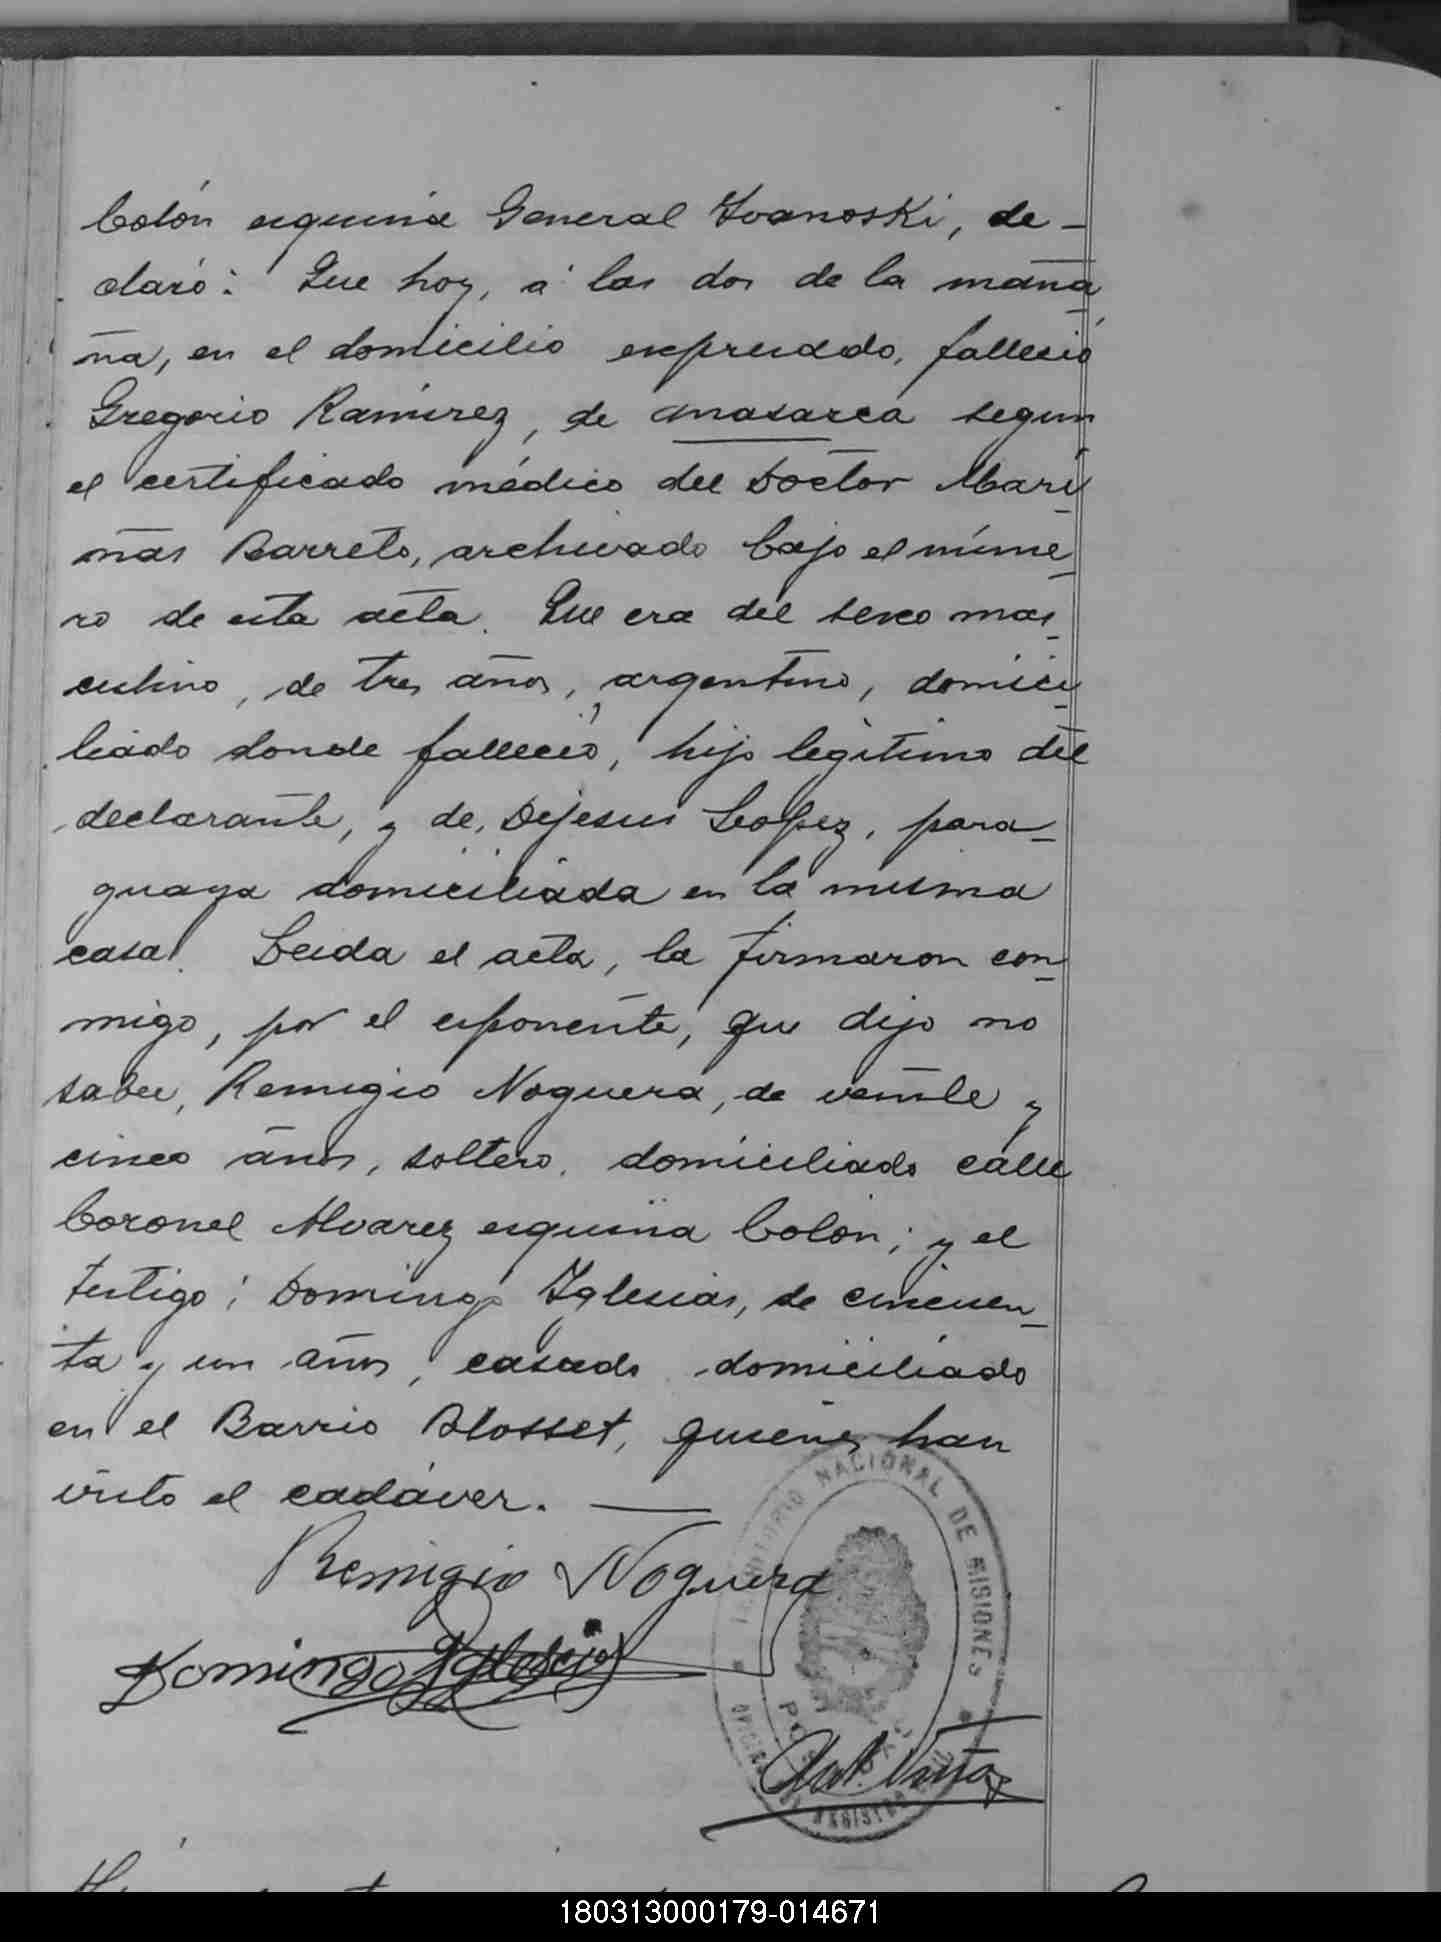 Colón esquina General Ivanoski, de-
claró: Que hoy, á las dos de la maña
ña, en el domicilio expresado, falleció
Gregorio Ramirez, de anasarca segun
el certificado médico del Doctor Mari
ñas Barreto, archivado bajo el núme
ro de esta acta. Que era del sexo mas
culino, de tres años, argentino, domici
liado donde falleció, hijo legitimo del
declarante, y de, Dejesus Lopez, para-
guaya domiciliada en la misma
casa. Leida el acta, la firmaron con
migo, por el exponente, que dijo no
saber, Remigio Noguera, de veinte y
cinco años, soltero, domiciliado calle
Coronel Alvarez esquina Colón; y el
testigo; Domingo Iglesias, de cincuen
ta y un años, casado domiciliado
en el Barrio Blosset, quienes han
visto el cadáver.
Remigio Noguera
Domingo Iglesias
TERRITORIO NACIONAL DE MISIONES
OFICINA REGISTRO CIVIL
POSADAS
180313000179-014671